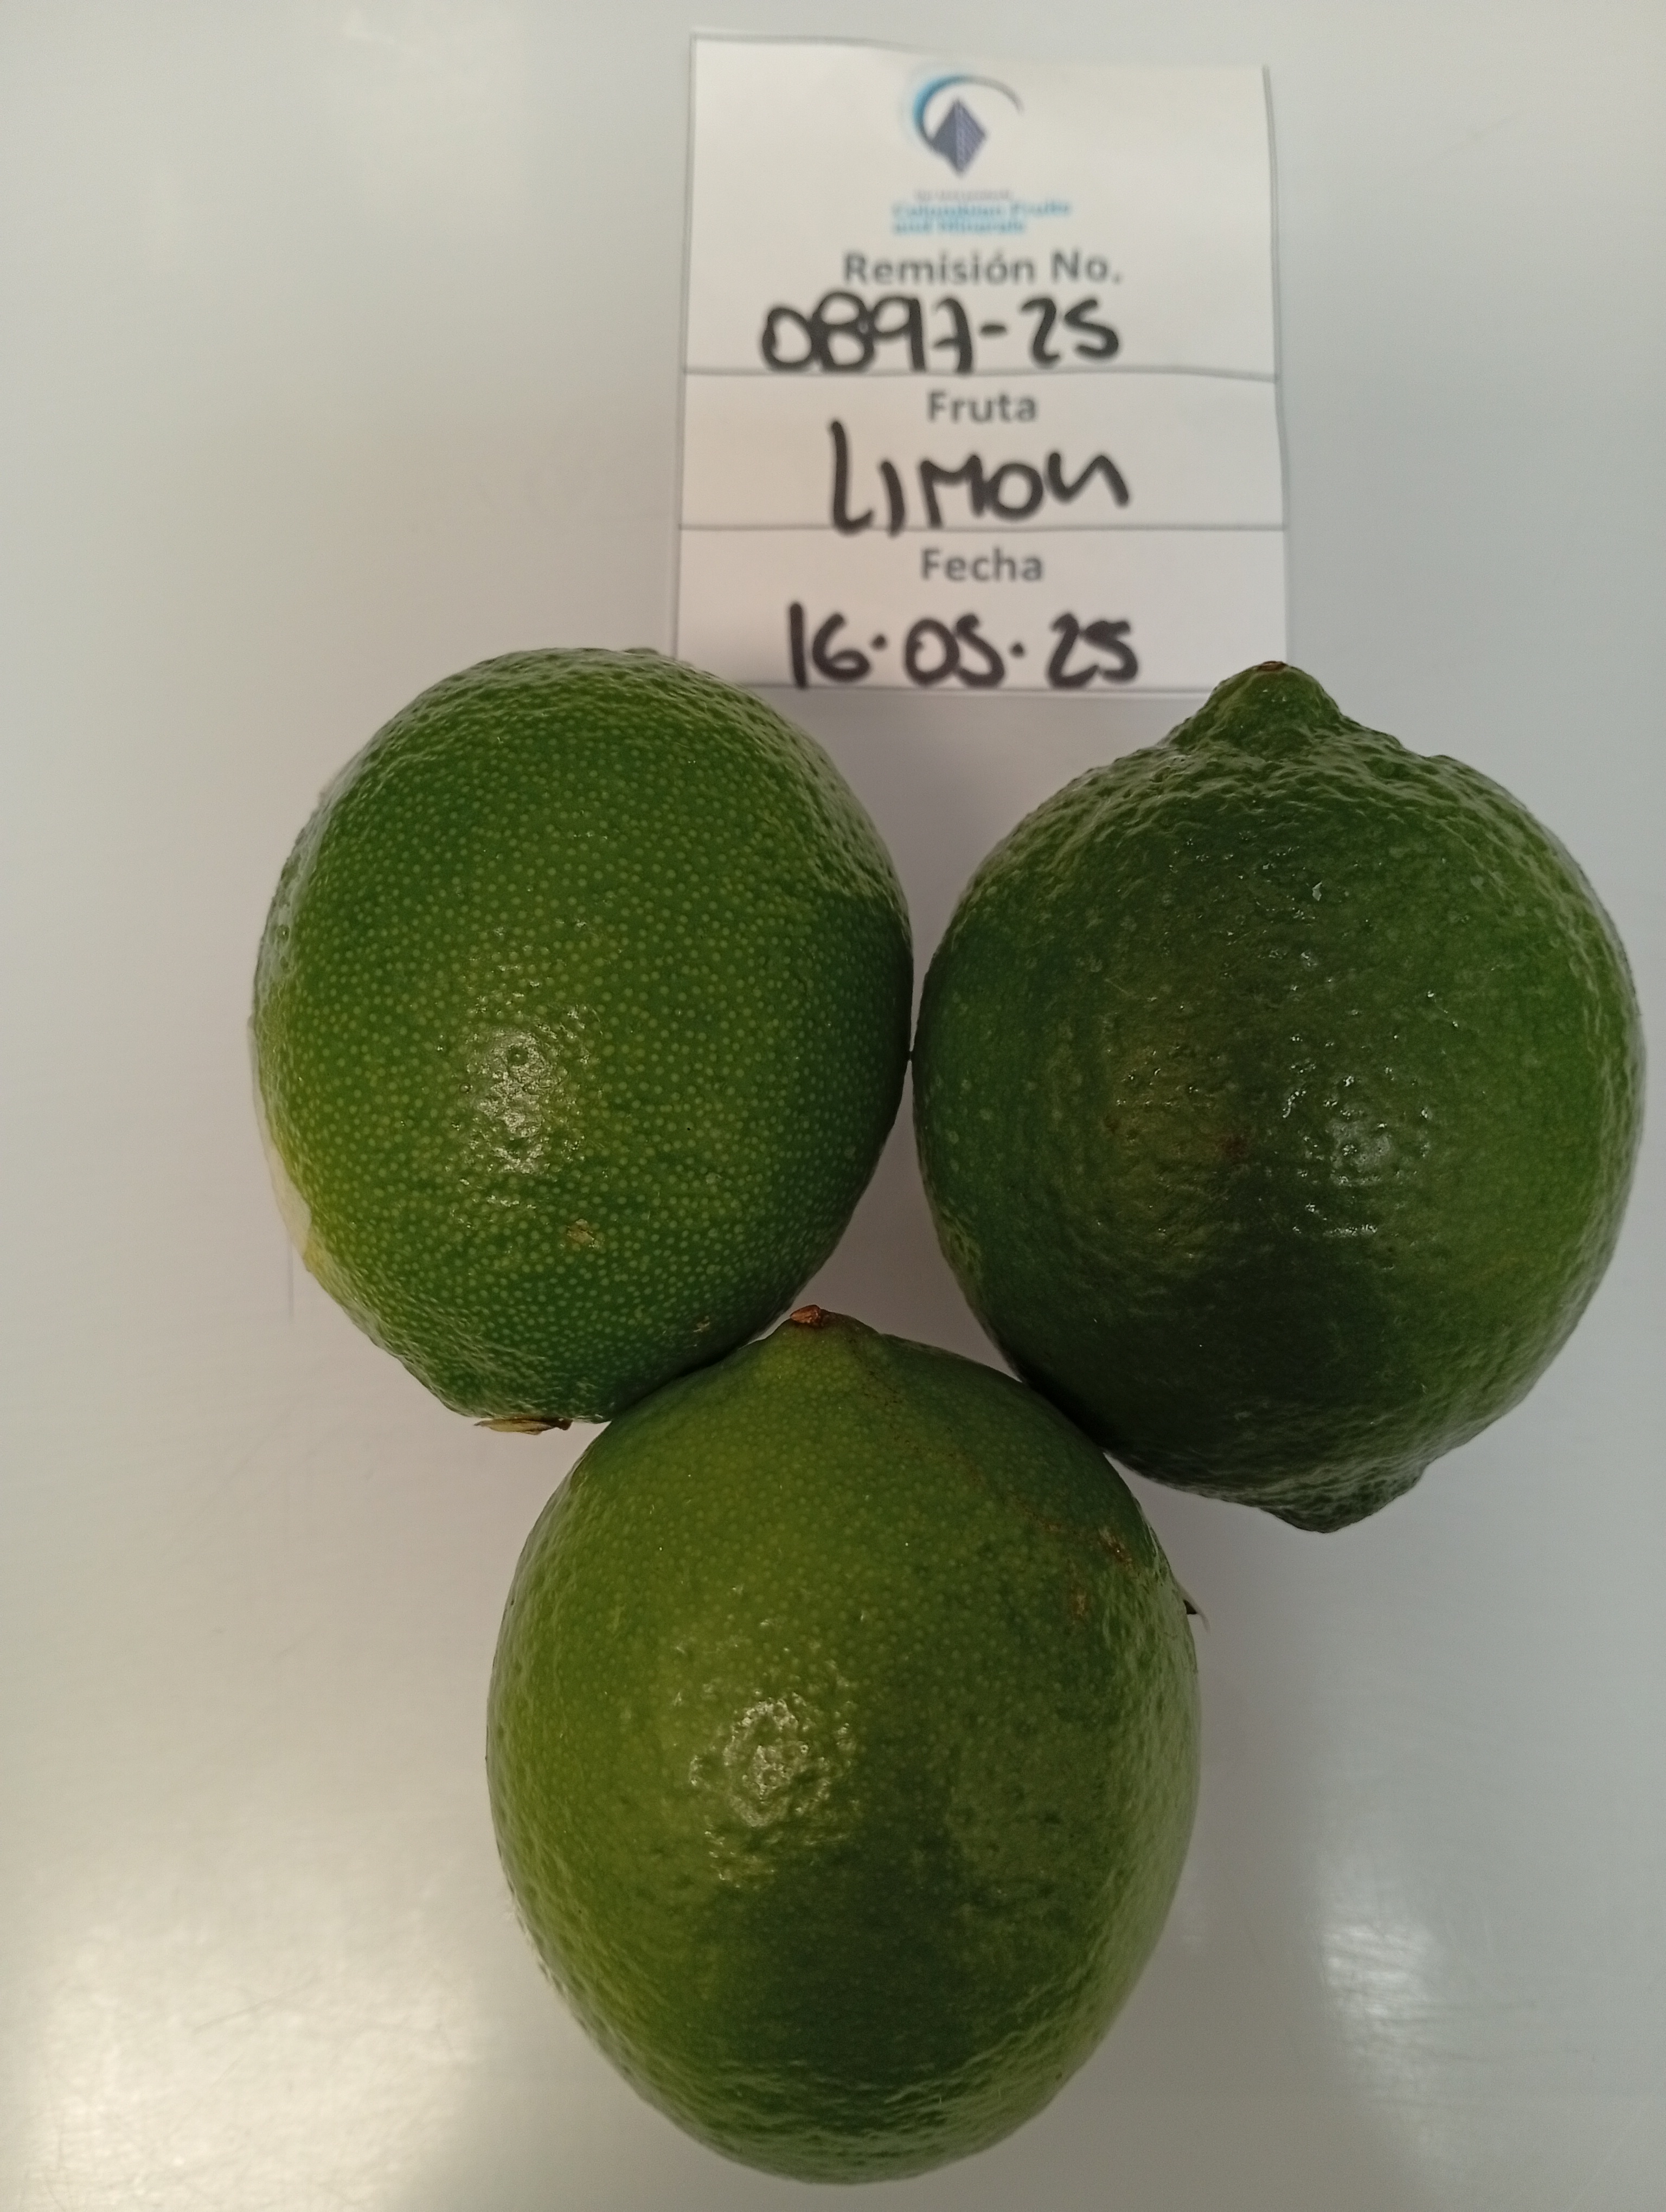 Colombian Fruits
and Minerals
Remisión No.
0897-25
Fruta
LIMON
Fecha
16·05·25